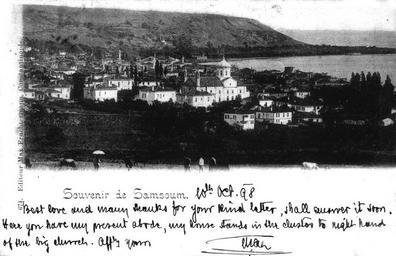 Souvenir de Samsoum. 20th Oct. 98
Best love and many thanks for your kind letter, shall answer it soon.
Here you have my present abode, my house stands in the cluster to right hand
of the big church. Affly yours
Editeur Max Fruchtermann